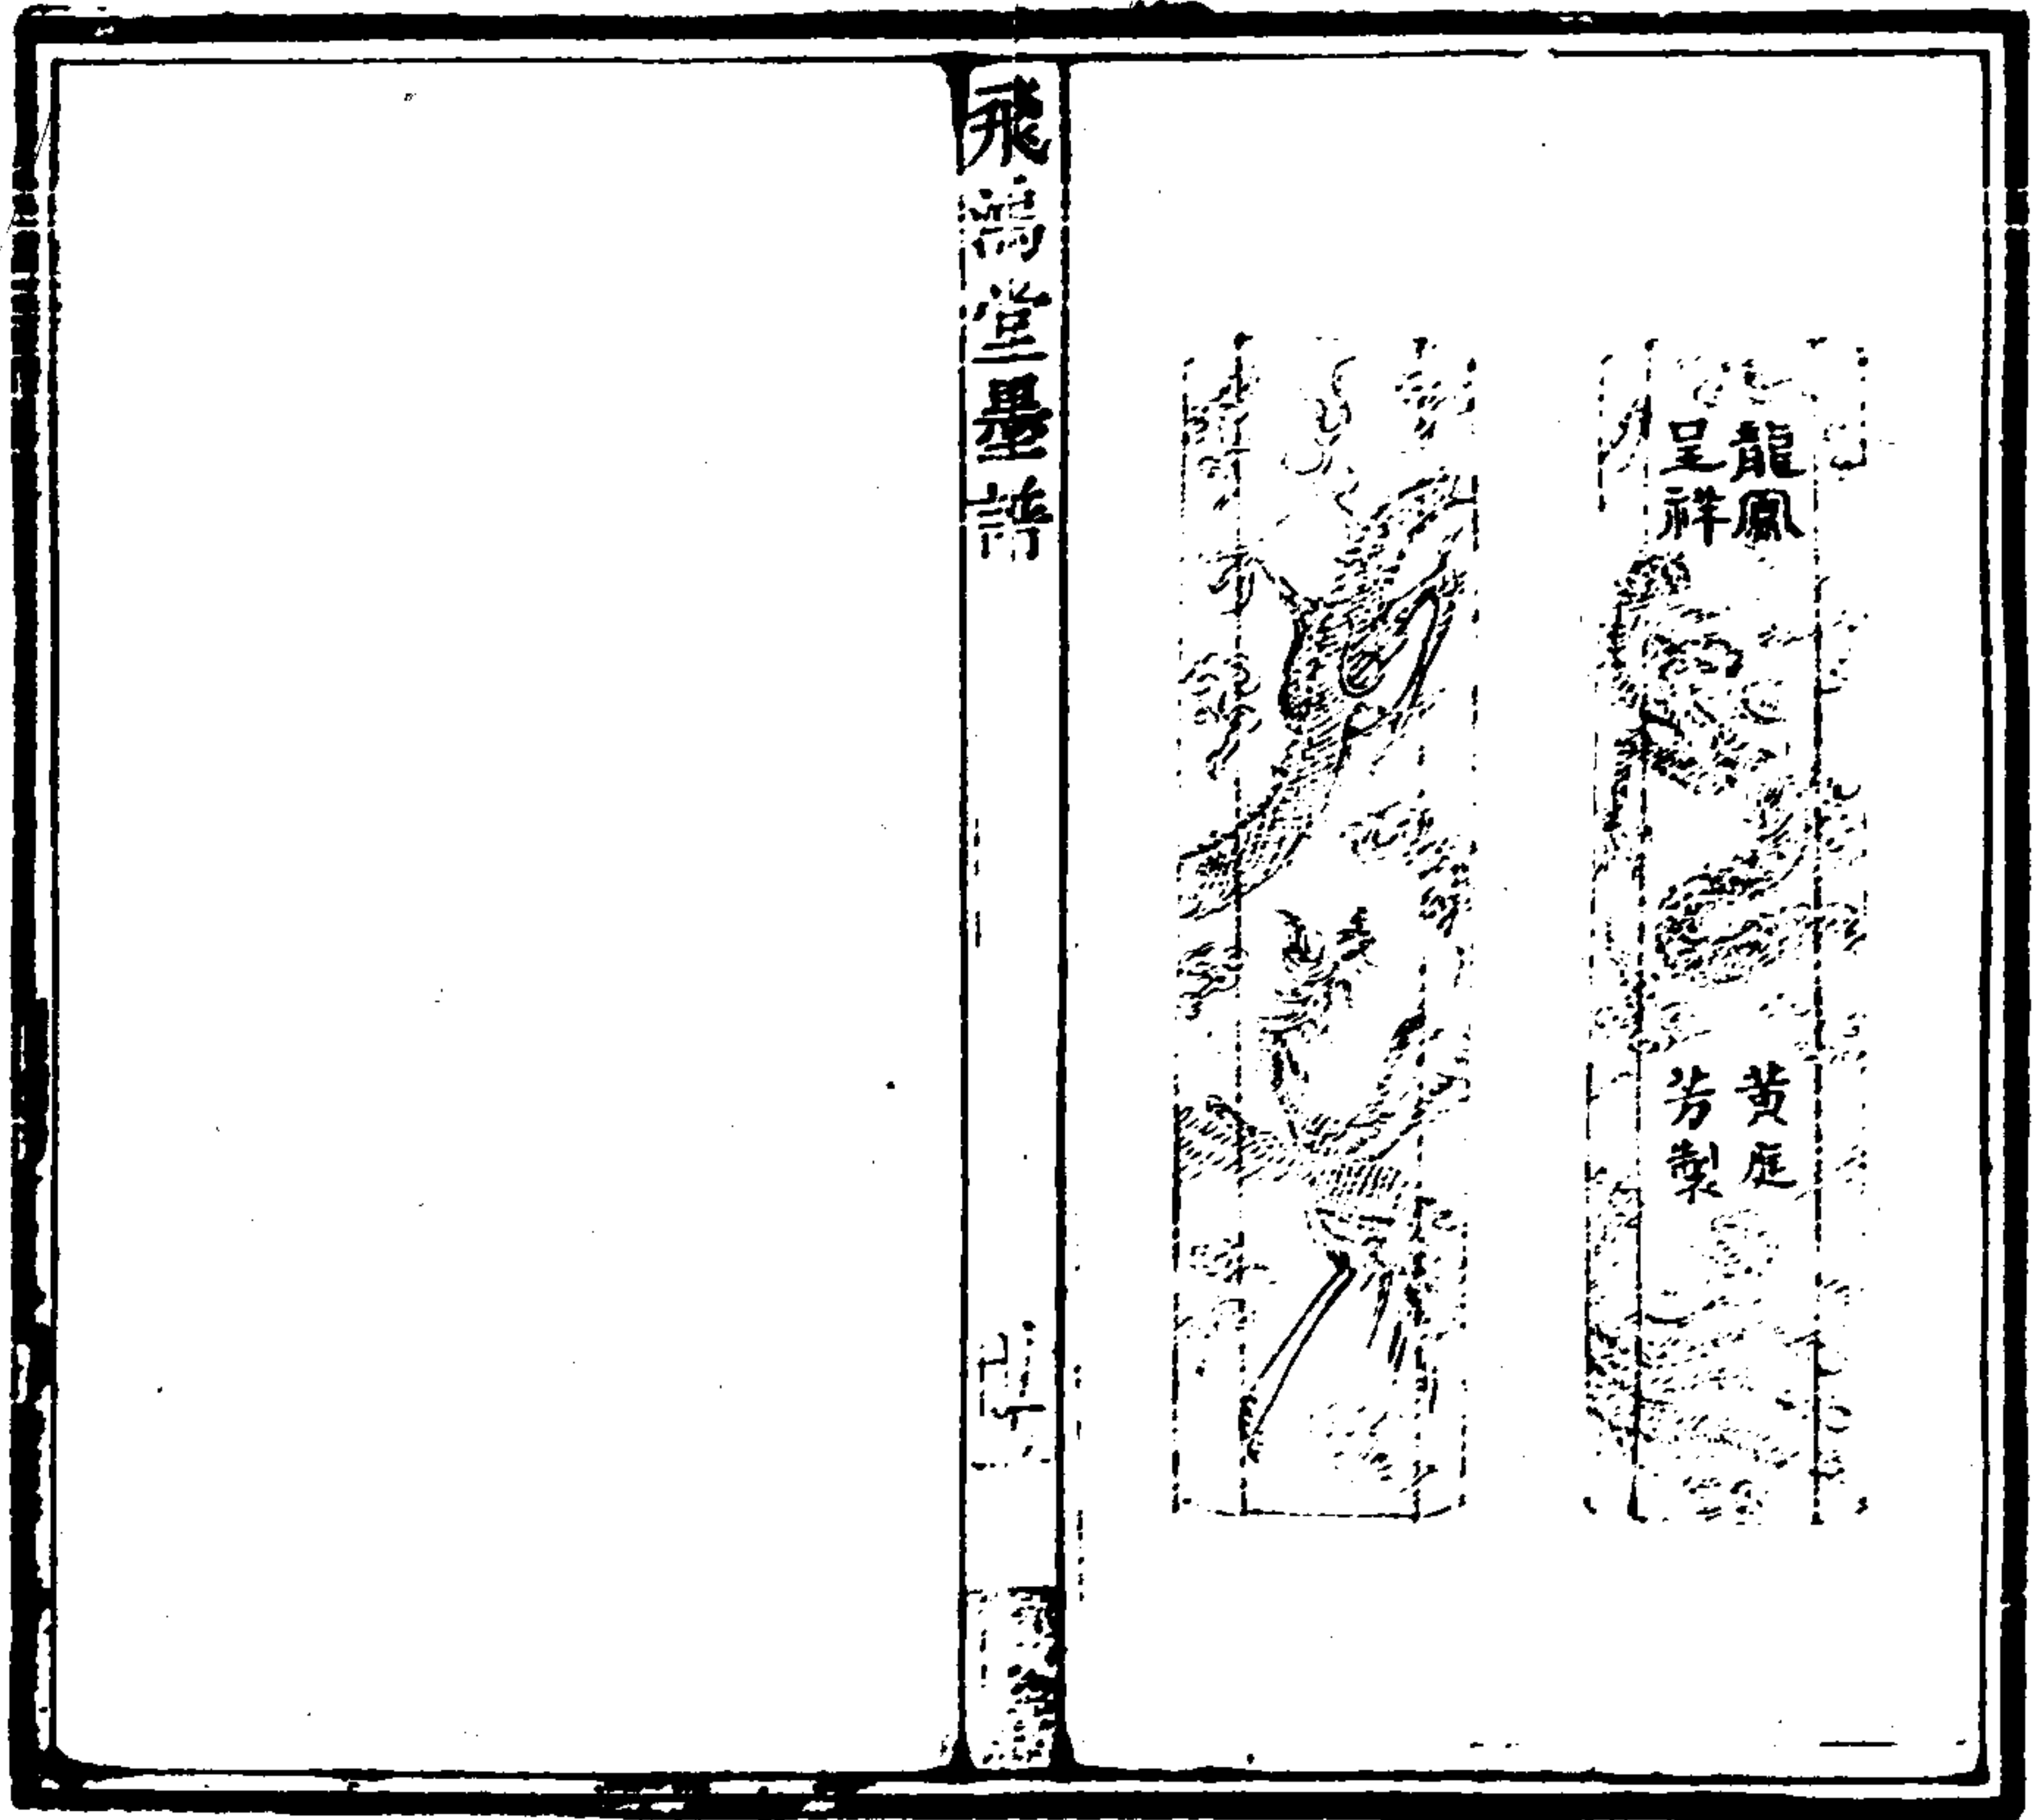 龍鳳
呈祥
黃庭
芳製
飛鴻堂墨譜